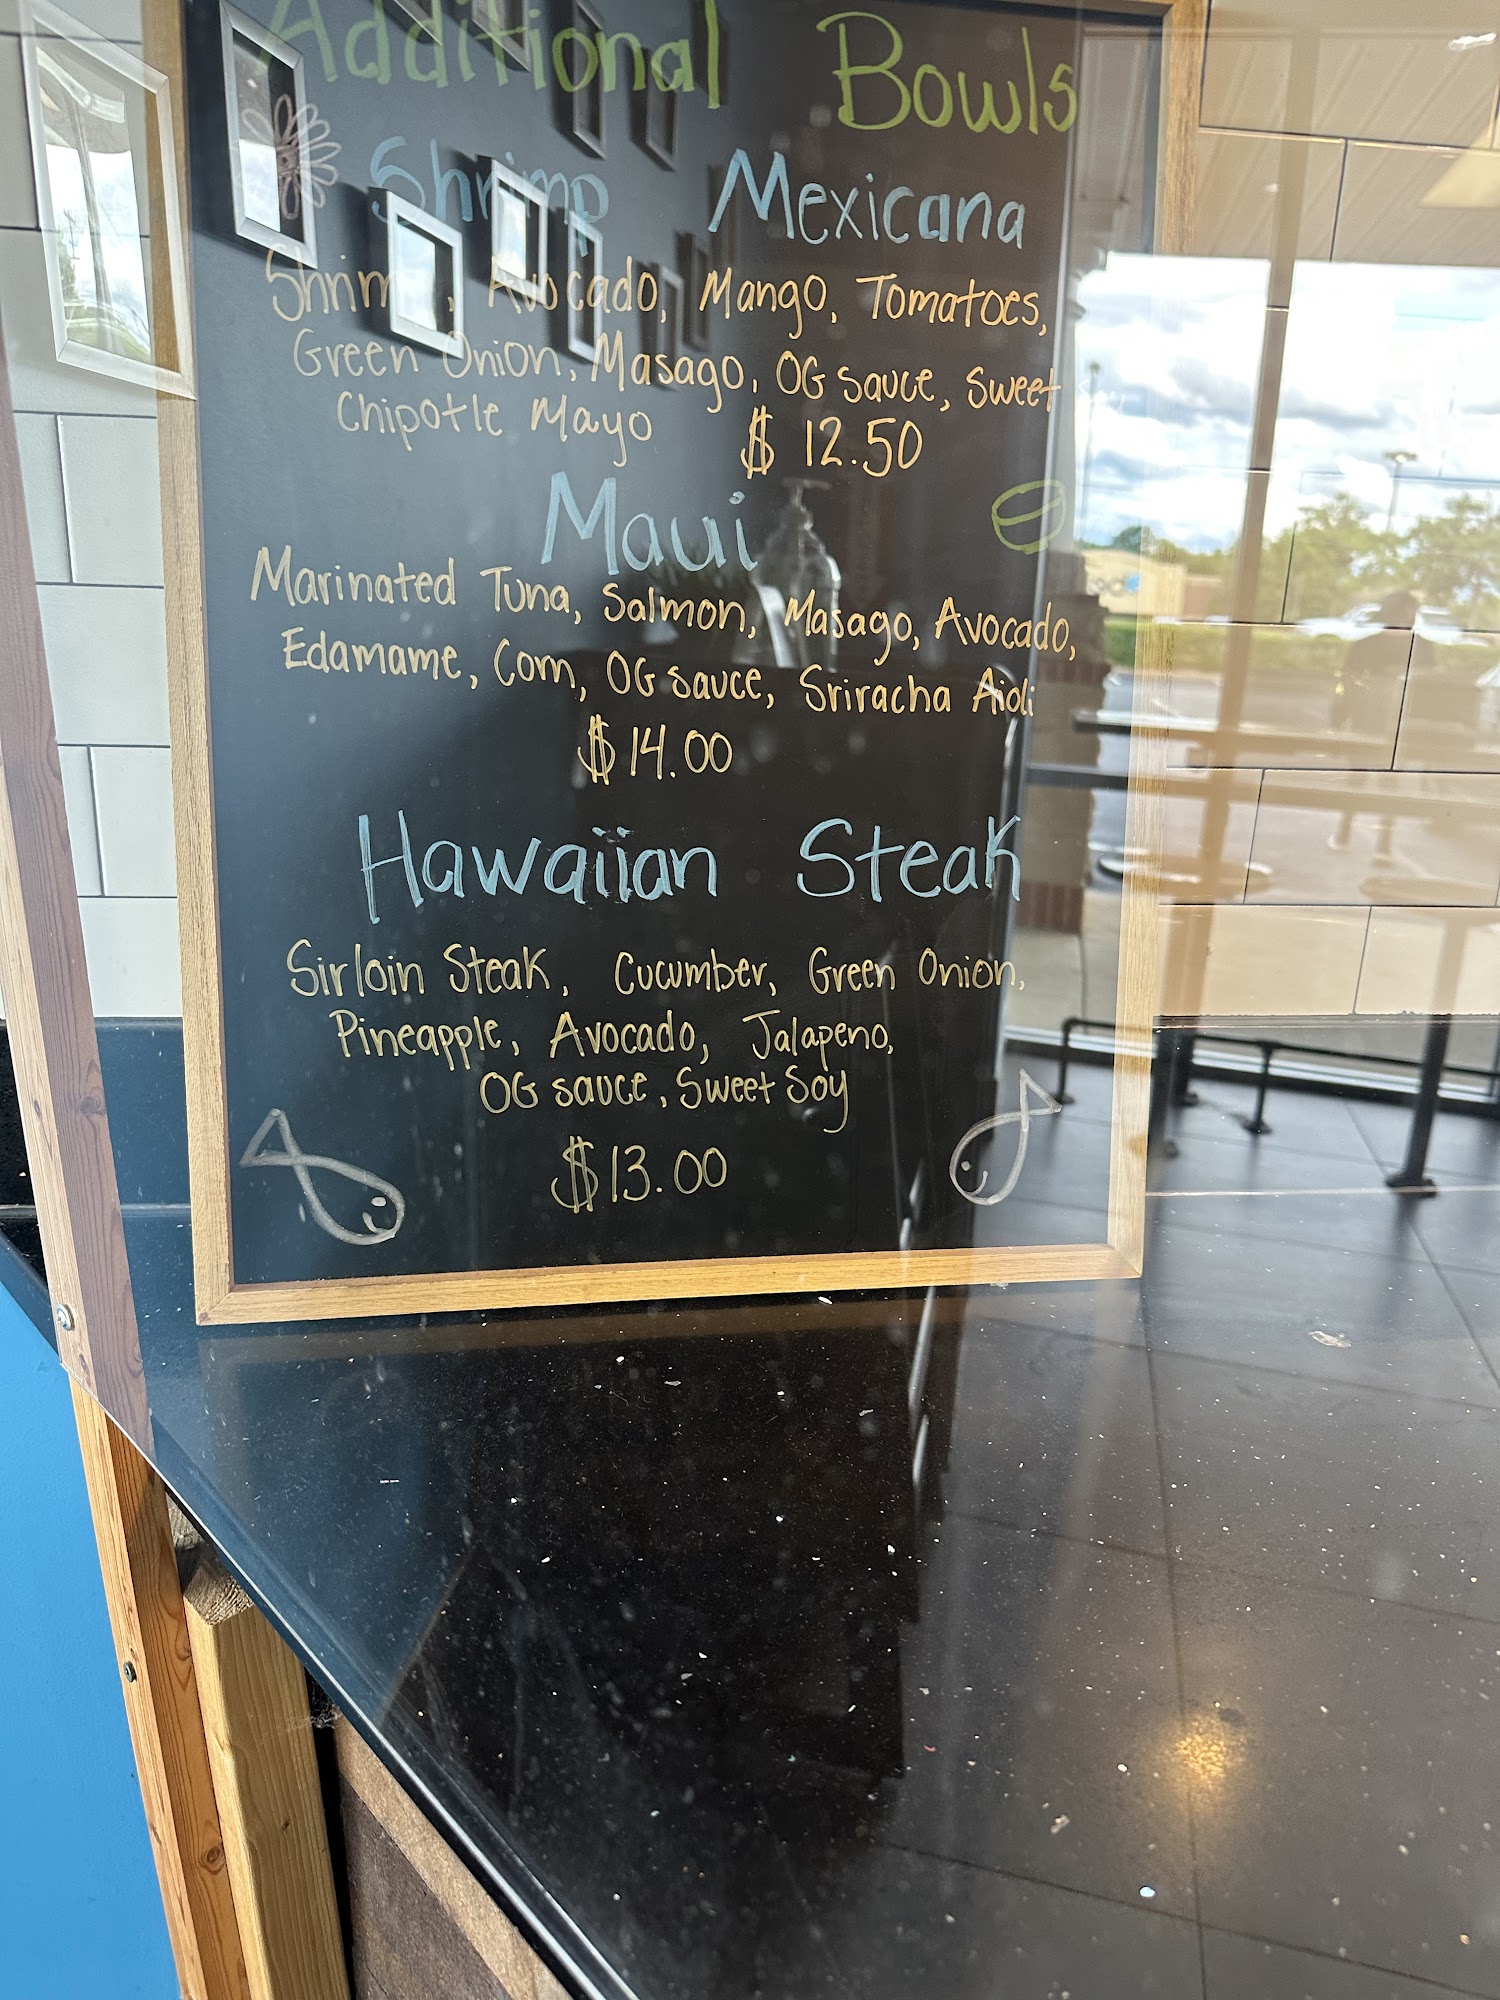 Additional Bowls
Shrimp Mexicana
Shrimp, Avocado, Mango, Tomatoes,
Green Onion, Masago, OG sauce, Sweet Soy
Chipotle Mayo $12.50
Maui
Marinated Tuna, Salmon, Masago, Avocado,
Edamame, Corn, OG sauce, Sriracha Aioli
$14.00
Hawaiian Steak
Sirloin Steak, Cucumber, Green Onion,
Pineapple, Avocado, Jalapeno,
OG sauce, Sweet Soy
$13.00